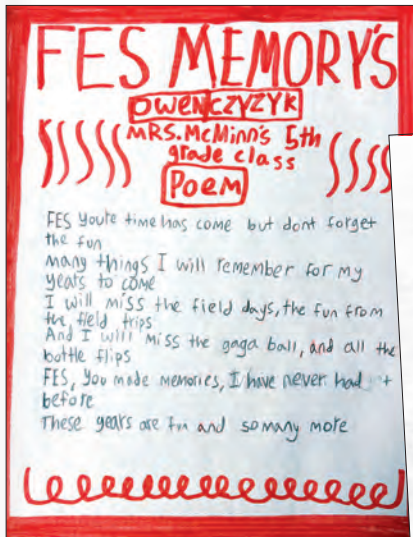 FES MEMORY'S
OWEN CZYZYK
MRS. McMinn's 5th
grade class
Poem
FES Youre time has come but dont forget
the fun
many things I will remember for my
years to come
I will miss the field days, the fun from
the, field trips
And I will miss the gaga ball, and all the
bottle flips
FES, You made memories, I have never had
before
These years are fun and so many more